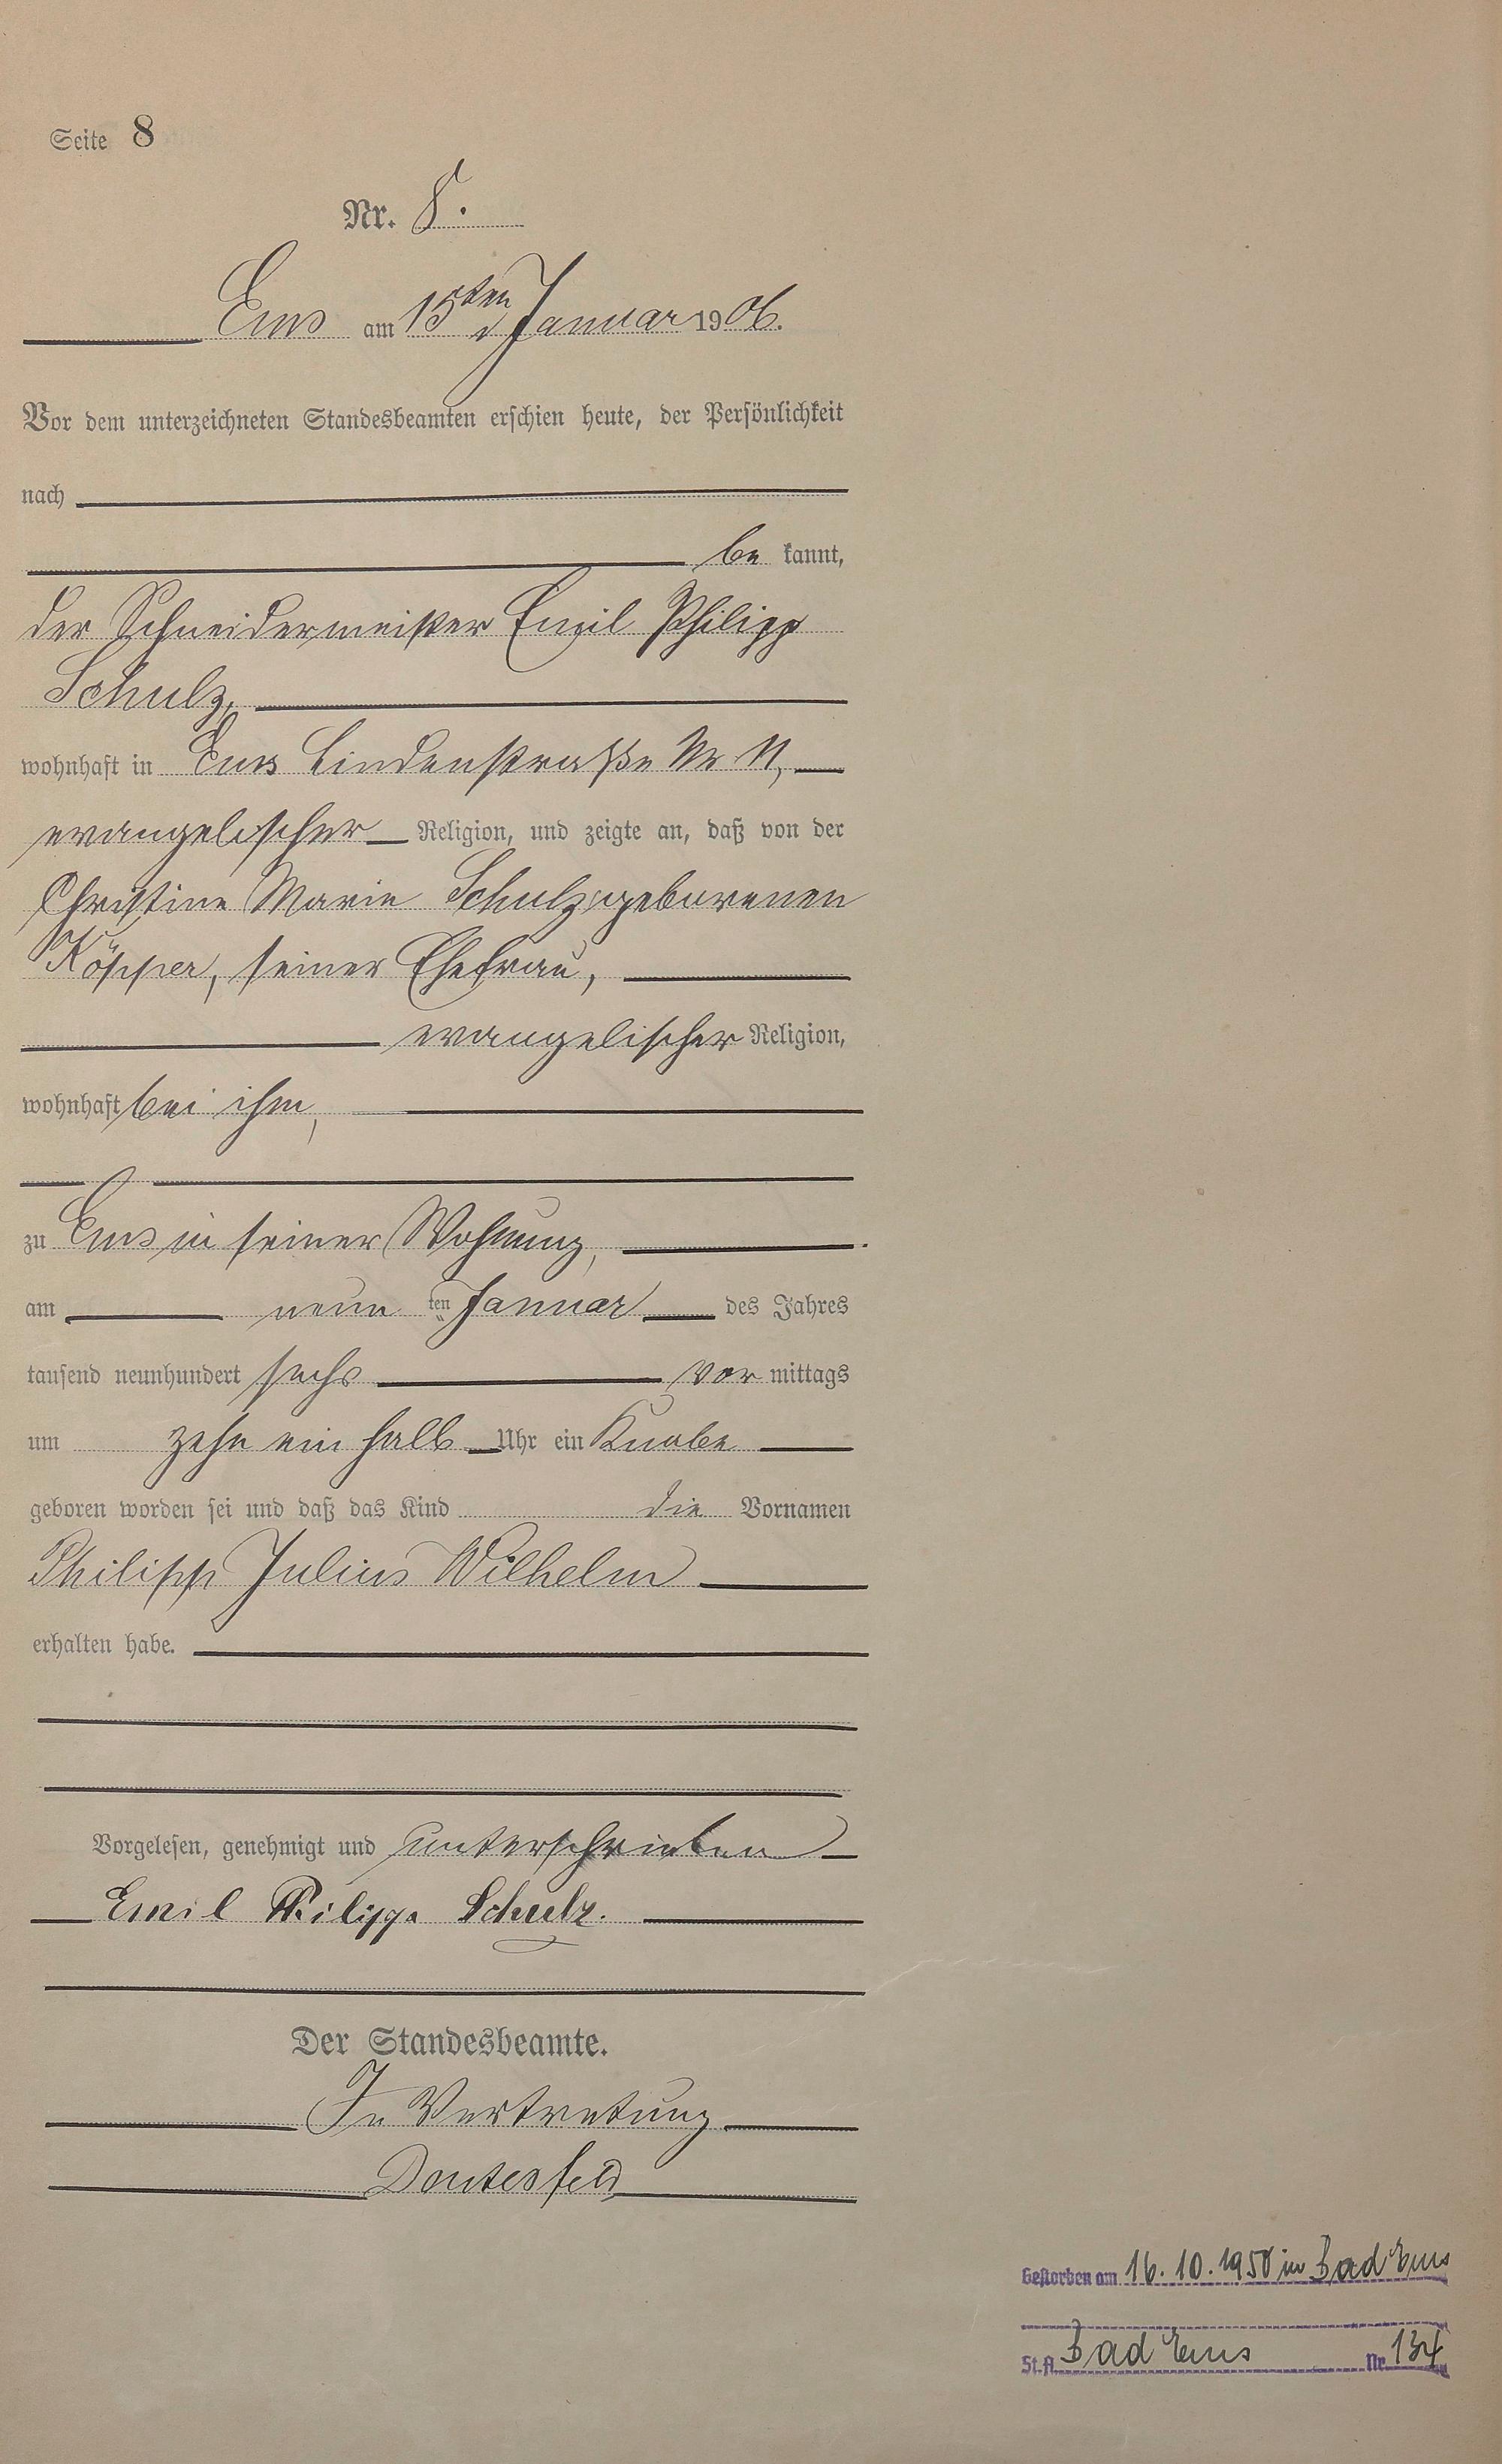 Seite 8
Nr. 8.
Ems am 15ten Januar 1906.
Vor dem unterzeichneten Standesbeamten erschien heute, der Persönlichkeit
nach
be kannt,
der Schneidermeister Emil Philipp
Schulz,
wohnhaft in Ems Lindenstraße Nr 11,
evangelischer Religion, und zeigte an, daß von der
Christine Marie Schulz geborenen
Köpper, seiner Ehefrau,
evangelischer Religion,
wohnhaft bei ihm,
zu Ems in seiner Wohnung,
am neun ten Januar des Jahres
tausend neunhundert sechs vor mittags
um zehn ein halb Uhr ein Knabe
geboren worden sei und daß das Kind die Vornamen
Philipp Julius Wilhelm
erhalten habe.
Vorgelesen, genehmigt und unterschrieben
Emil Philipp Schulz.
Der Standesbeamte.
In Vertretung
Gestorben am 16.10.1950 in Bad Ems
St.A. Bad Ems Nr. 134